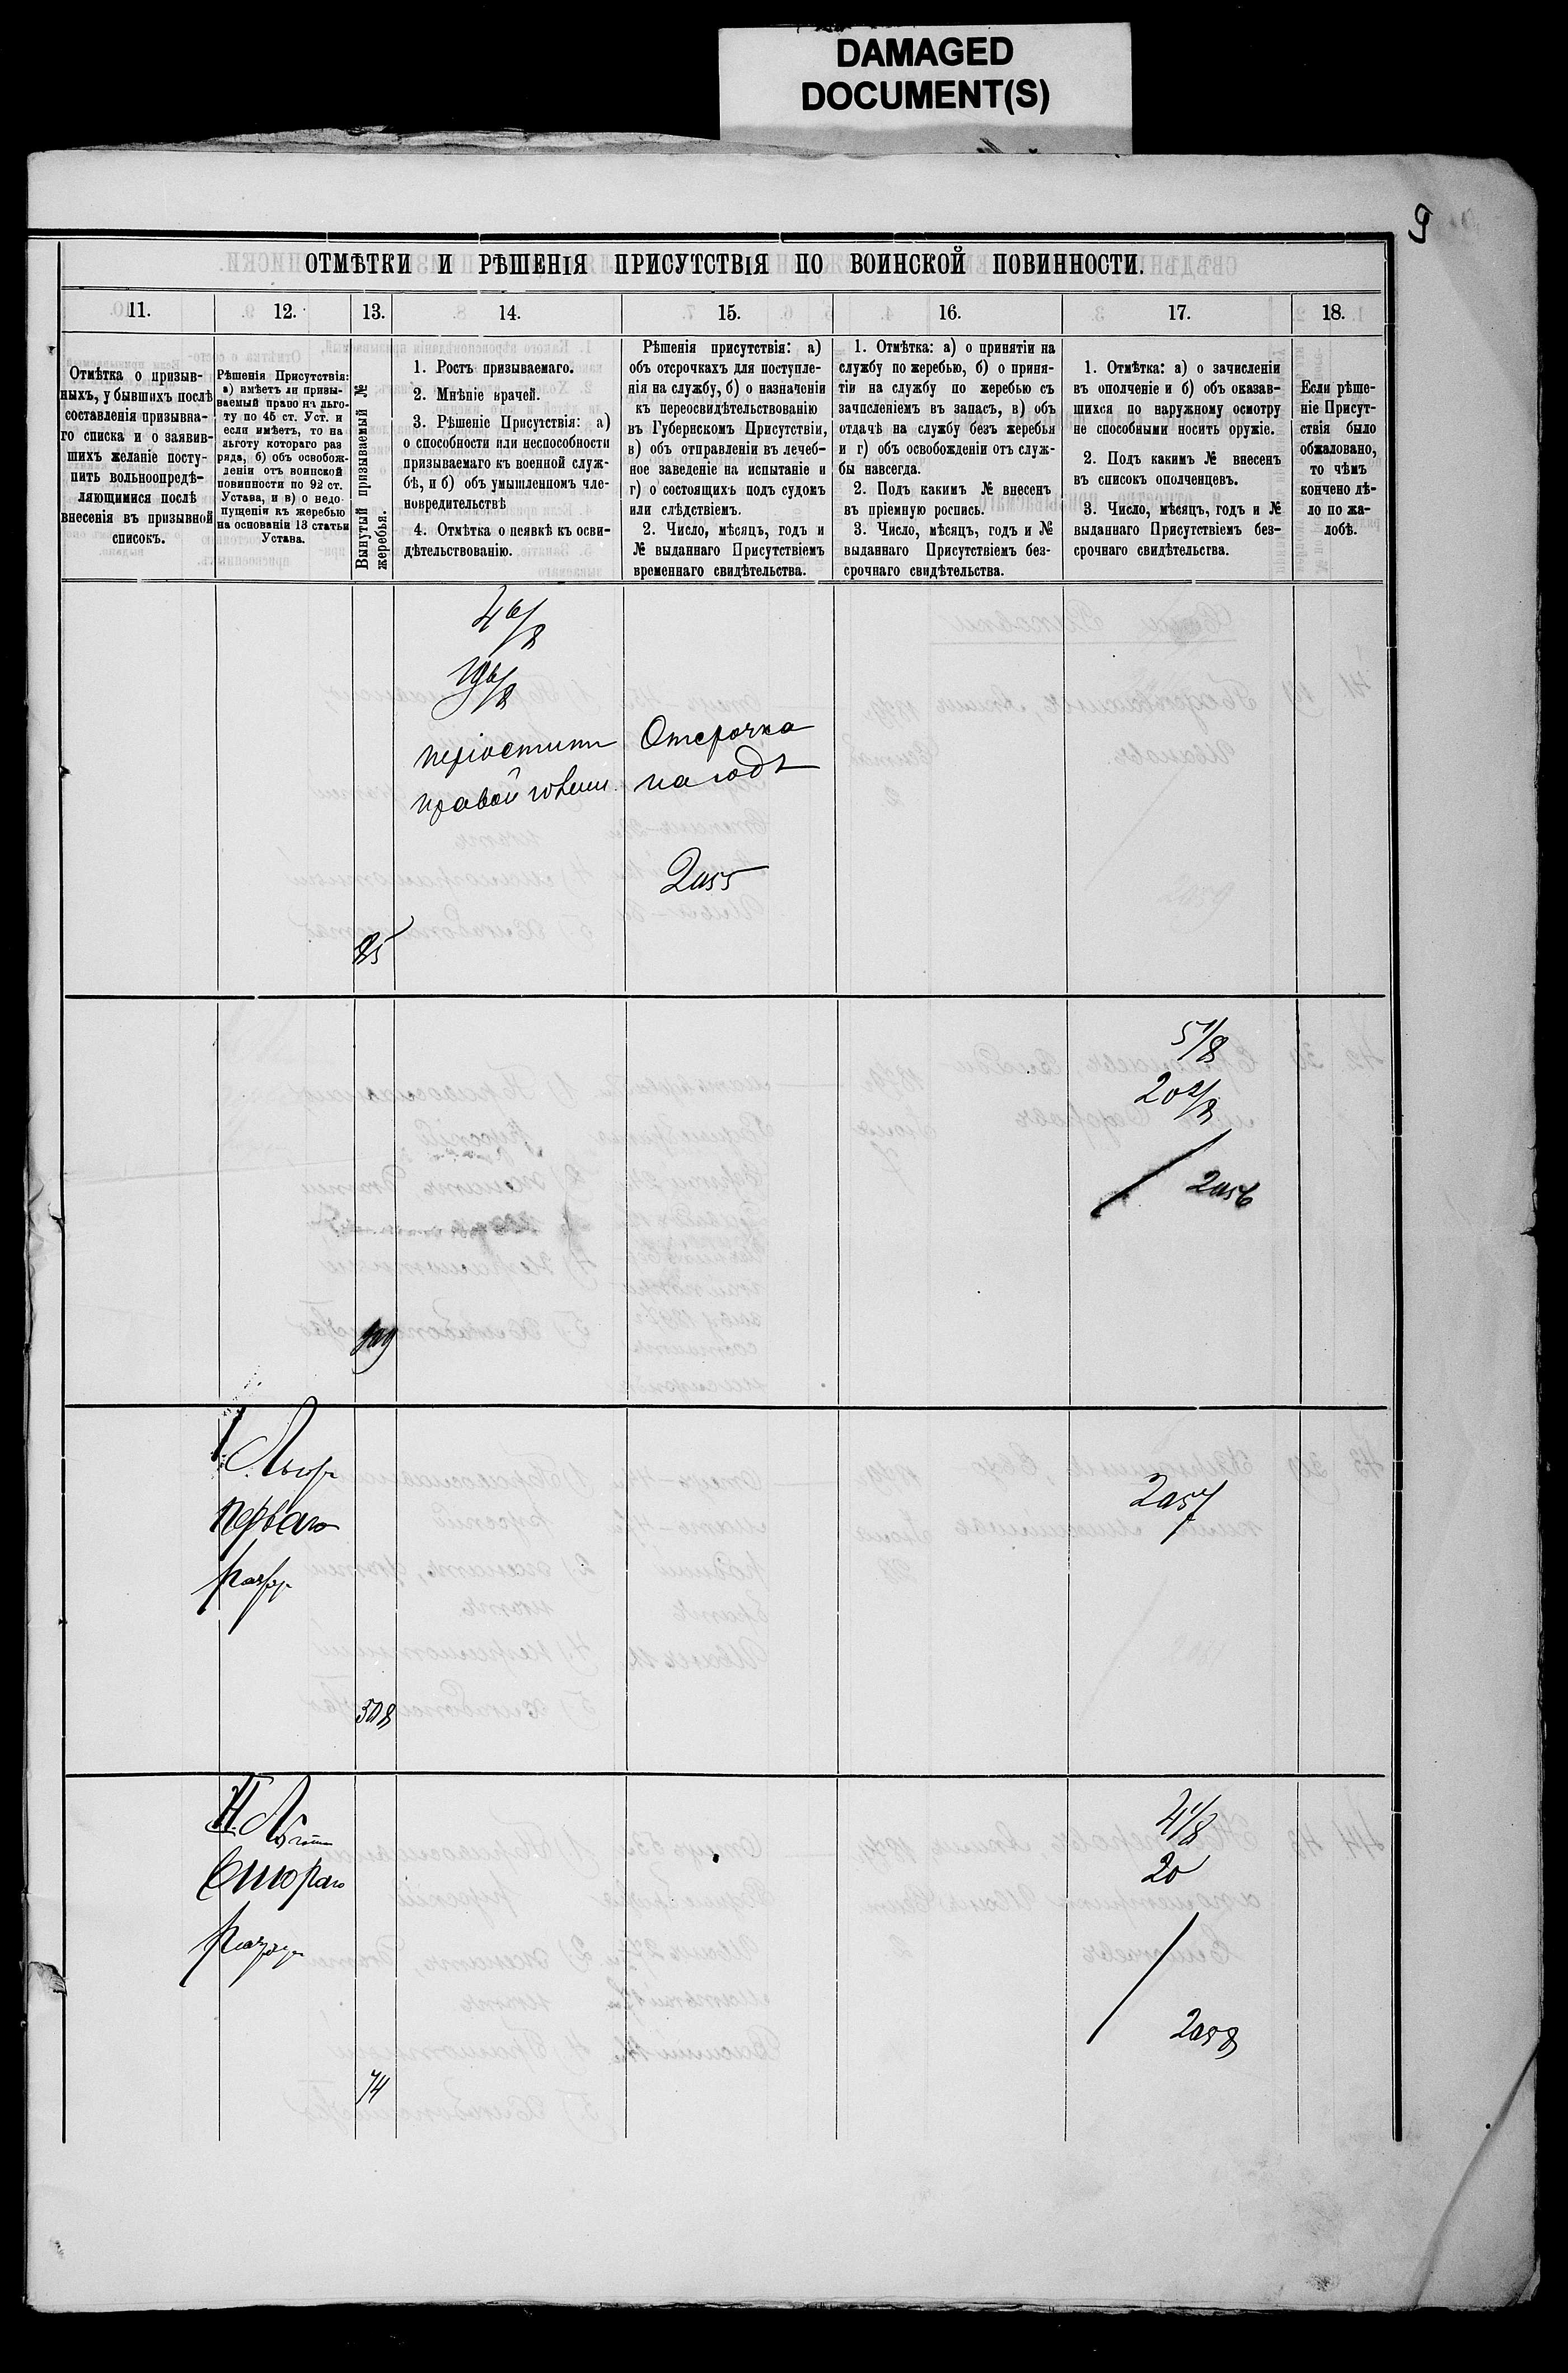 DAMAGED
DOCUMENT(S)
9
ОТМѢТКИ И РѢШЕНІЯ ПРИСУТСТВІЯ ПО ВОИНСКОЙ ПОВИННОСТИ.
11.
12.
13.
14.
15.
16.
17.
18.
Отмѣтка о призыв-
ныхъ, у бывшихъ послѣ
составленія призывна-
го списка и о заявив-
шихъ желаніе посту-
пить вольноопредѣ-
ляющимися послѣ
внесенія въ призывной
списокъ.
Рѣшенія Присутствія:
а) имѣетъ ли призы-
ваемый право на льго-
ту по 45 ст. Уст. и
если имѣетъ, то на
льготу котораго раз
ряда, б) объ освобож-
деніи отъ воинской
повинности по 92 ст.
Устава, и в) о недо-
пущеніи къ жеребью
на основаніи 13 статьи
Устава.
Вынутый призываемый №
жеребья.
1. Ростъ призываемаго.
2. Мнѣніе врачей.
3. Рѣшеніе Присутствія: а)
о способности или неспособности
призываемаго къ военной служ-
бѣ, и б) объ умышленномъ чле-
новредительствѣ
4. Отмѣтка о неявкѣ къ осви-
дѣтельствованію.
Рѣшенія присутствія: а)
объ отсрочкахъ для поступле-
нія на службу, б) о назначеніи
къ переосвидѣтельствованію
въ Губернскомъ Присутствіи,
в) объ отправленіи въ лечеб-
ное заведеніе на испытаніе и
г) о состоящихъ подъ судомъ
или слѣдствіемъ.
2. Число, мѣсяцъ, годъ и
№ выданнаго Присутствіемъ
временнаго свидѣтельства.
1. Отмѣтка: а) о принятіи на
службу по жеребью, б) о приня-
тіи на службу по жеребью съ
зачисленіемъ въ запасъ, в) объ
отдачѣ на службу безъ жеребья
и г) объ освобожденіи отъ служ-
бы навсегда.
2. Подъ какимъ № внесенъ
въ пріемную роспись.
3. Число, мѣсяцъ, годъ и №
выданнаго Присутствіемъ без-
срочнаго свидѣтельства.
1. Отмѣтка: а) о зачисленіи
въ ополченіе и б) объ оказав-
шихся по наружному осмотру
не способными носить оружіе.
2. Подъ какимъ № внесенъ
въ списокъ ополченцевъ.
3. Число, мѣсяцъ, годъ и №
выданнаго Присутствіемъ без-
срочнаго свидѣтельства.
Если рѣше-
ніе Присут-
ствія было
обжаловано,
то чѣмъ
кончено дѣ-
ло по жа-
лобѣ.
4 6/8
19 6/8
періостит
правой голени.
Отсрочка
на годъ
2055
85
5 1/8
20 2/8
2056
I. Льгот
перваго
разр
2057
508
II. Льготы
Втораго
разряд
4 1/8
20
2058
74